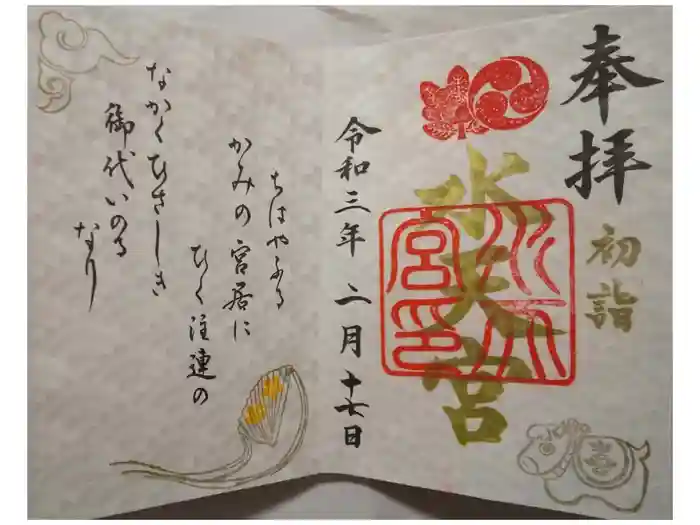 奉拝
初詣
水天宮
水天宮印
令和三年 二月 十七日
ちはやふる
かみの宮居に
ひく注連の
なかくひさしき
御代いのる
なり